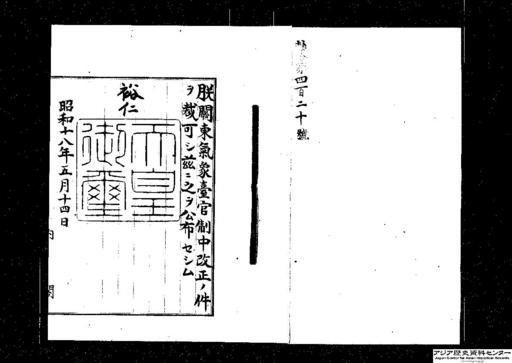 勅令第四百二十號
朕關東氣象臺官制中改正ノ件
ヲ裁可シ茲ニ之ヲ公布セシム
裕仁
天皇御璽
昭和十八年五月十四日
内閣
アジア歴史資料センター
Japan Center for Asian Historical Records